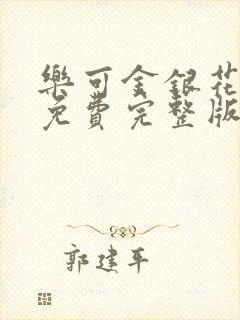 樂可金銀花
免費完整版
郭建平